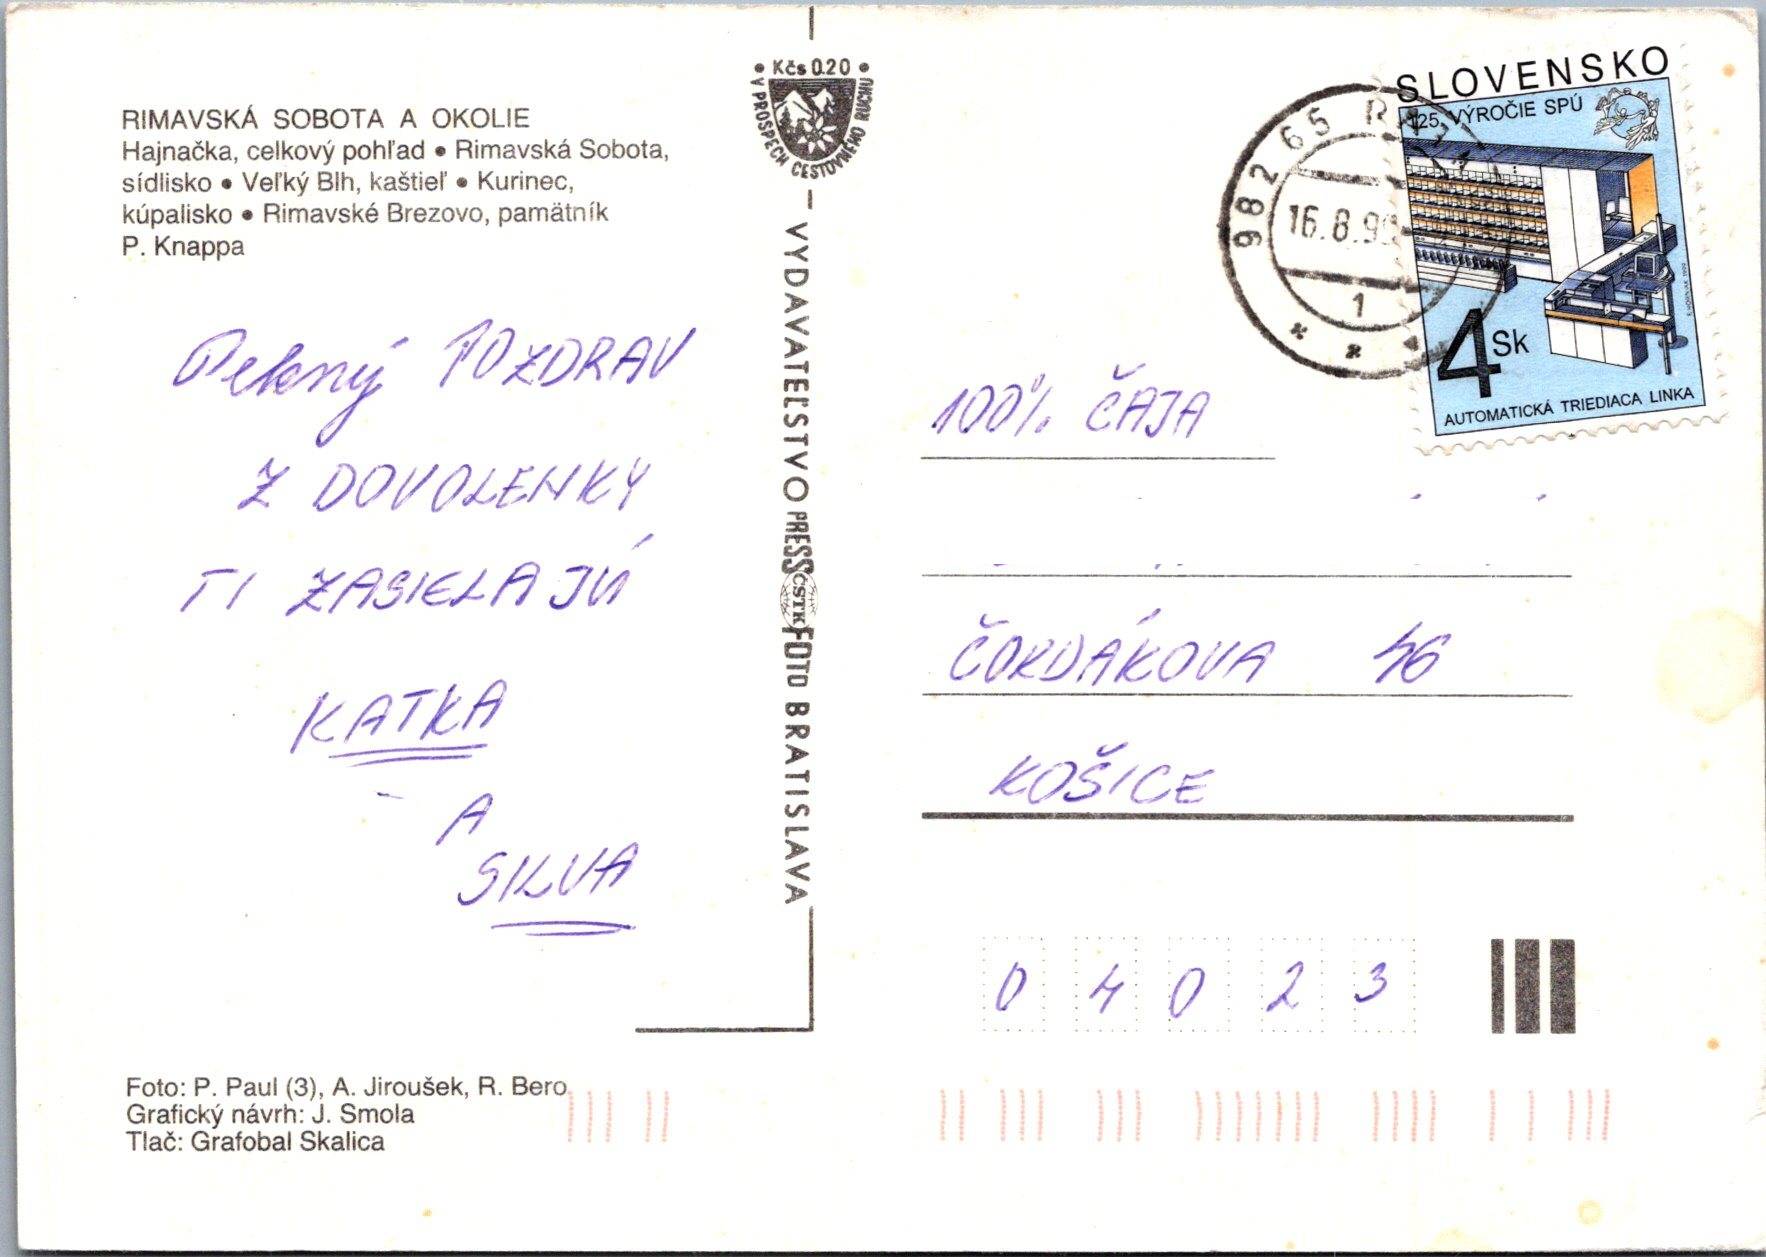 RIMAVSKÁ SOBOTA A OKOLIE
Hajnačka, celkový pohľad • Rimavská Sobota,
sídlisko • Veľký Blh, kaštieľ • Kurinec,
kúpalisko • Rimavské Brezovo, pamätník
P. Knappa
Pekný POZDRAV
Z DOVOLENKY
TI ZASIELAJÚ
KATKA
A
SILVA
Foto: P. Paul (3), A. Jiroušek, R. Bero
Grafický návrh: J. Smola
Tlač: Grafobal Skalica
• Kčs 0.20 •
V PROSPECH CESTOVNÉHO RUCHU
VYDAVATEĽSTVO PRESSFOTO BRATISLAVA
ČSTK
982 65
16.8.99
1
SLOVENSKO
125. VÝROČIE SPÚ
4 Sk
AUTOMATICKÁ TRIEDIACA LINKA
100% ČAJA
ČORDÁKOVA 46
KOŠICE
04023